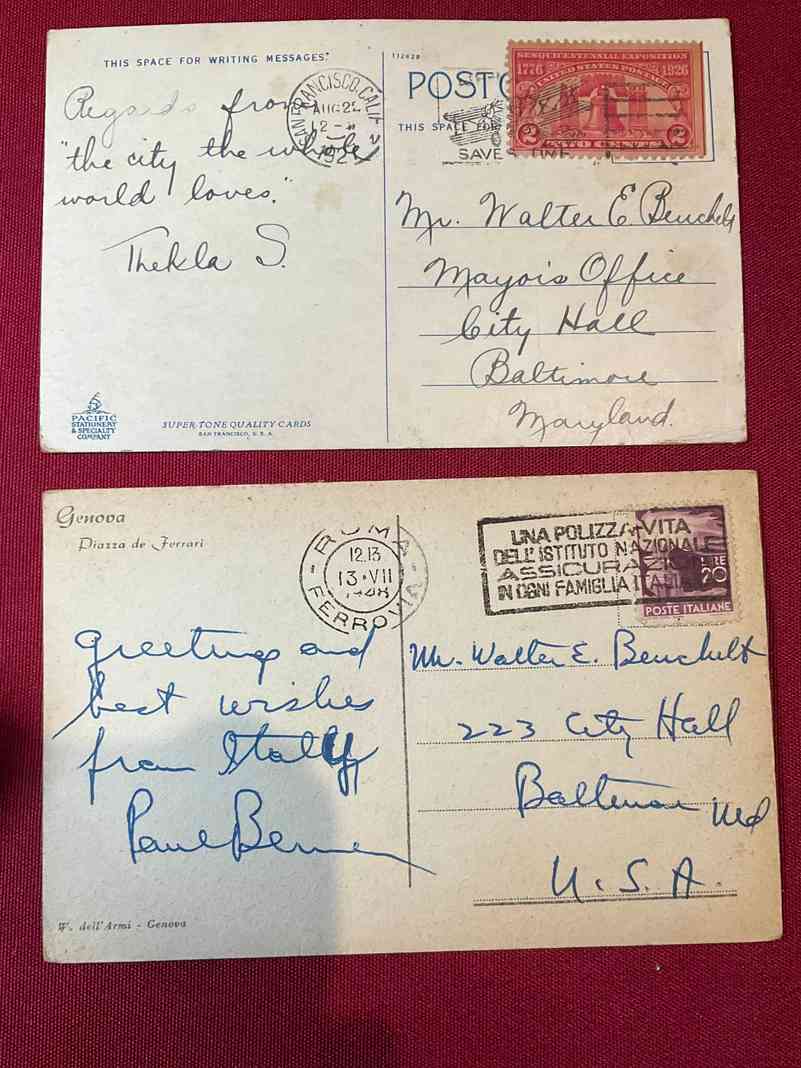 THIS SPACE FOR WRITING MESSAGES.
Regards from
"the city the whole
world loves."
Thekla S.
PACIFIC
STATIONERY
& SPECIALTY
COMPANY
SUPER-TONE QUALITY CARDS
SAN FRANCISCO, U. S. A.
SAN FRANCISCO, CALIF.
AUG 25
12 -
192
112629
POSTC
THIS SPACE FOR
SAVES TIME
SESQUICENTENNIAL EXPOSITION
1776 UNITED STATES POSTAGE 1926
2 TWO CENTS 2
Mr. Walter E. Beuchelt
Mayois Office
City Hall
Baltimore
Maryland.
Genova
Piazza de Ferrari
ROMA
12.13
13·VII
1948
FERROVIA
UNA POLIZZA VITA
DELL'ISTITUTO NAZIONALE
ASSICURAZI
IN OGNI FAMIGLIA ITALIA
LIRE
20
POSTE ITALIANE
Greetings and
best wishes
from Italy
Paul
Mr. Walter E. Beuchelt
223 City Hall
Baltimore Md
U. S. A.
W. dell'Armi - Genova